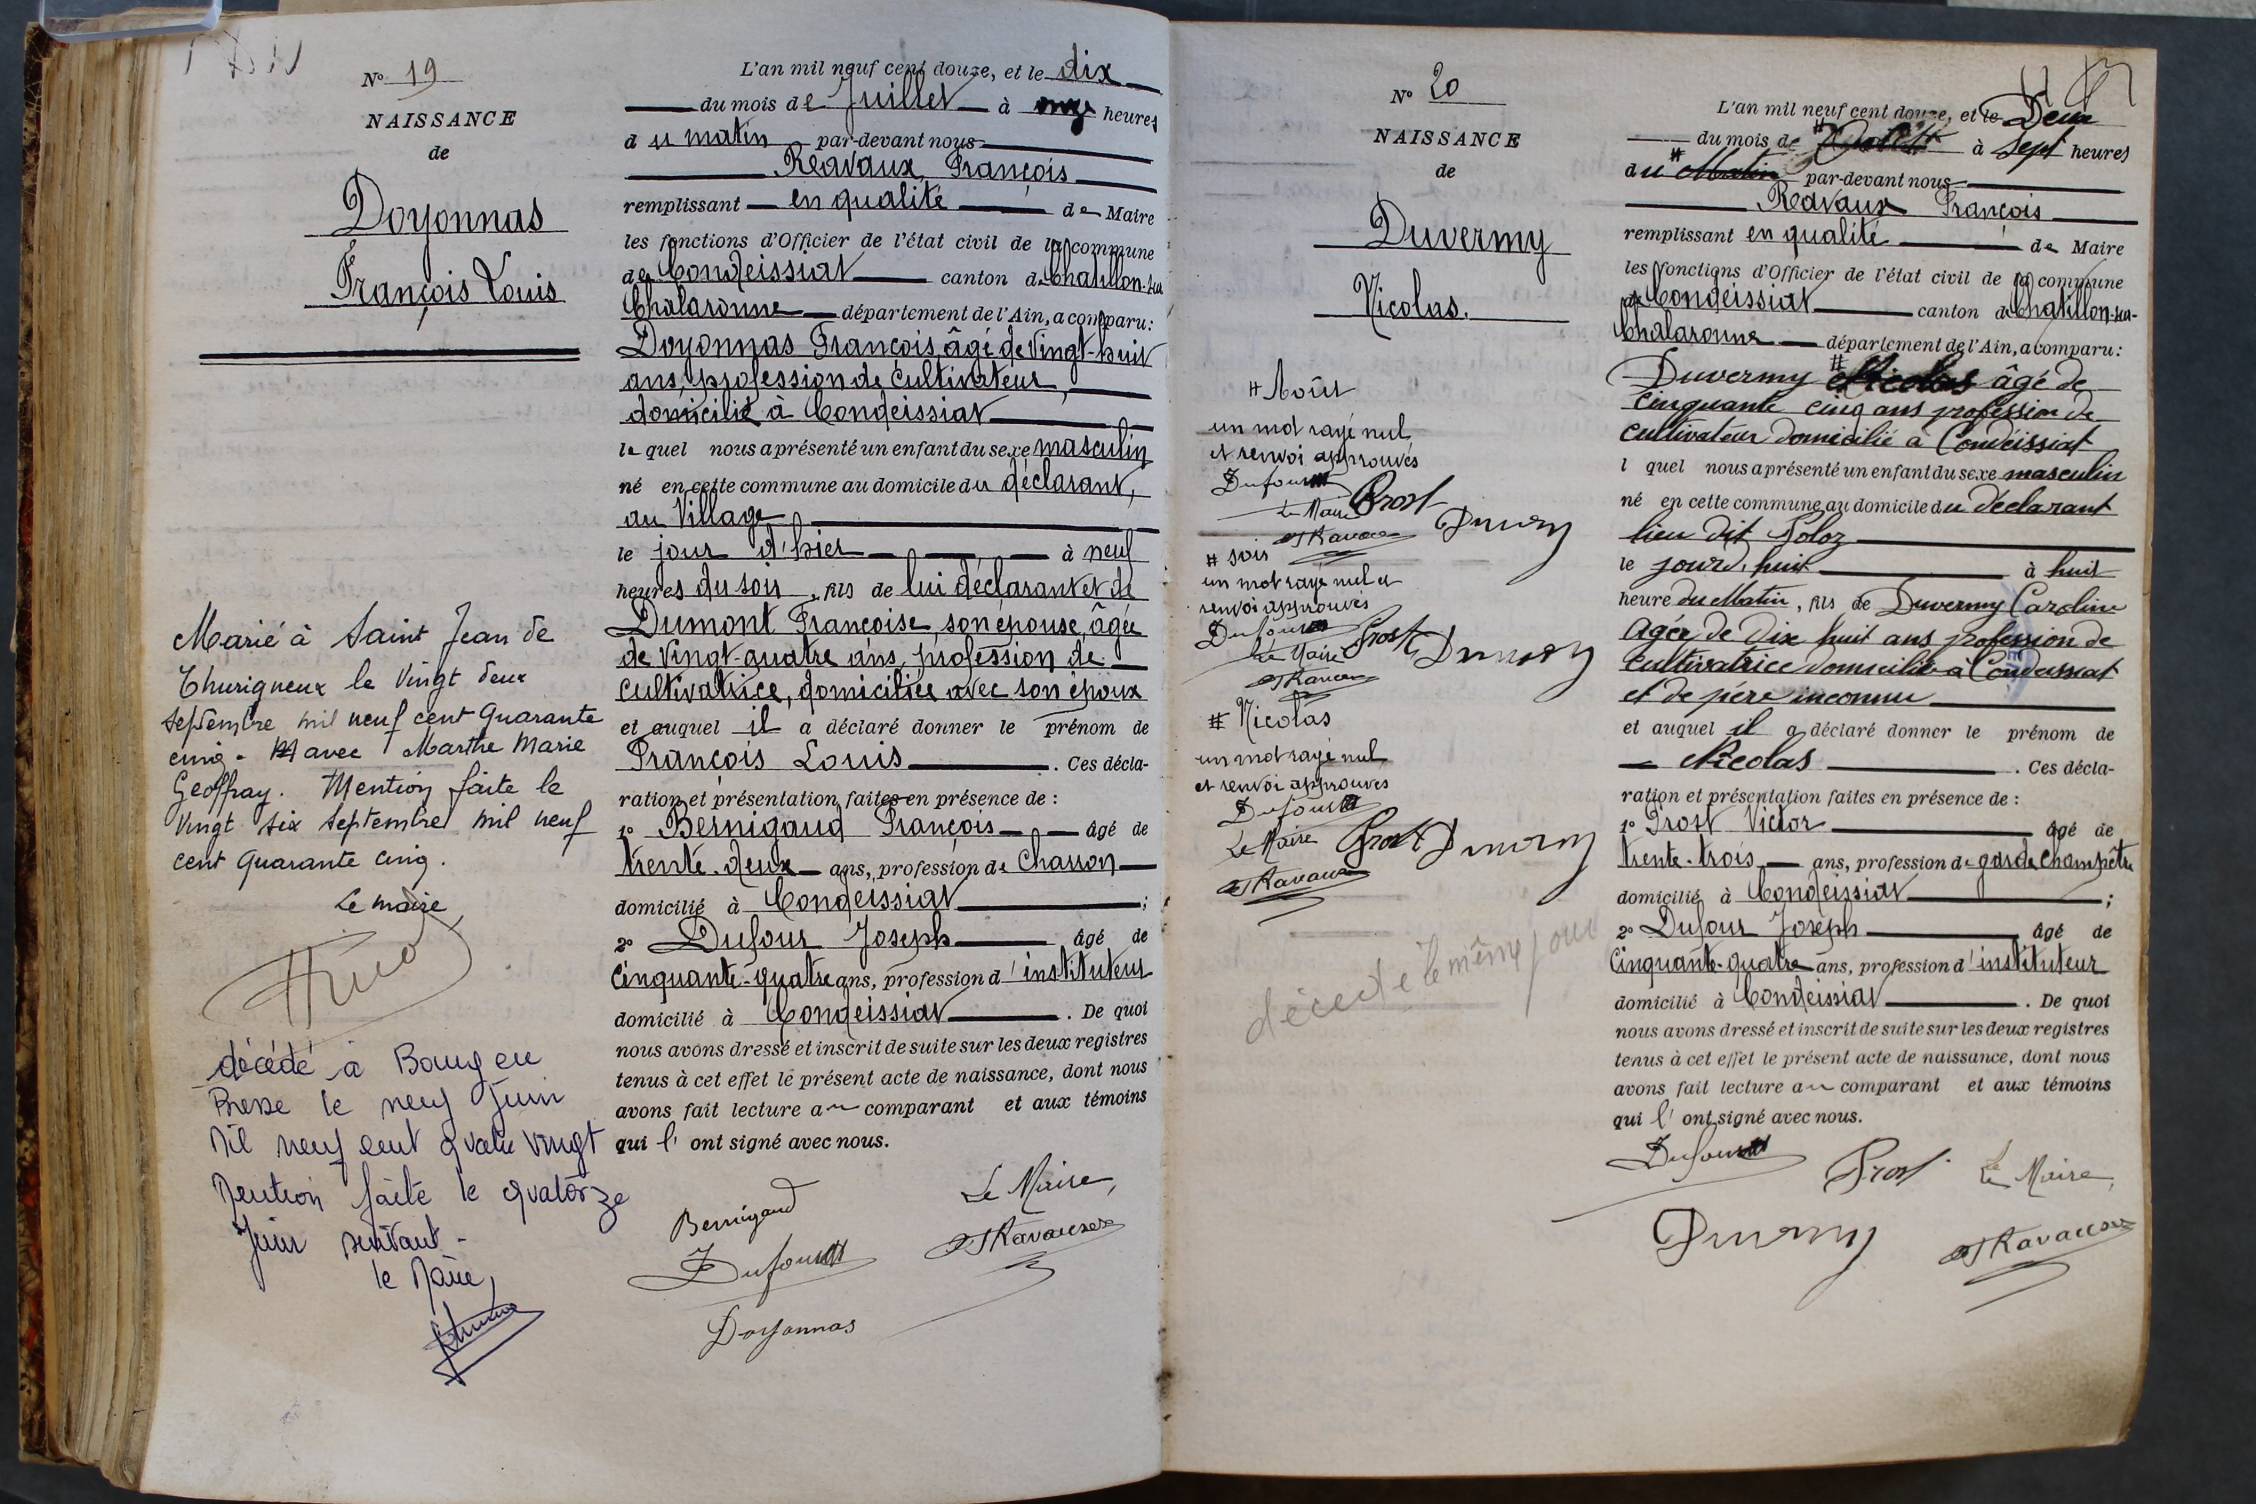 N° 19
NAISSANCE
de
Doyonnas
François Louis
Marié à Saint Jean de
Thurigneux le vingt deux
septembre mil neuf cent quarante
cinq - avec Marthe Marie
Geoffray. Mention faite le
vingt six septembre mil neuf
cent quarante cinq.
Le maire
décédé à Bourg en
Bresse le neuf Juin
Mil neuf cent quatre vingt
Mention faite le quatorze
Juin suivant -
le Maire,
L'an mil neuf cent douze, et le dix
du mois de Juillet à onze heures
du matin par-devant nous
Ravaux François
remplissant en qualité de Maire
les fonctions d'Officier de l'état civil de la commune
de Condeissiat canton de Chatillon-sur
Chalaronne département de l'Ain, a comparu:
Doyonnas François, âgé de vingt-huit
ans, profession de cultivateur,
domicilié à Condeissiat
le quel nous a présenté un enfant du sexe masculin
né en cette commune au domicile du déclarant,
au Village
le jour d'hier à neuf
heures du soir, fils de lui déclarant et de
Dumont Françoise, son épouse, âgée
de vingt-quatre ans, profession de
cultivatrice, domiciliée avec son époux
et auquel il a déclaré donner le prénom de
François Louis. Ces décla-
ration et présentation faites en présence de :
1° Bernigaud François âgé de
trente-deux ans, profession de Charron
domicilié à Condeissiat ;
2° Dufour Joseph âgé de
cinquante-quatre ans, profession d'instituteur
domicilié à Condeissiat. De quoi
nous avons dressé et inscrit de suite sur les deux registres
tenus à cet effet le présent acte de naissance, dont nous
avons fait lecture au comparant et aux témoins
qui l' ont signé avec nous.
Le Maire,
Bernigaud
Dufour
Ravaux
Doyonnas
N° 20
NAISSANCE
de
Duvermy
Nicolas.
# Août
un mot rayé nul
et renvoi approuvés
Dufour
Le Maire Prost Duvermy
Ravaux
# soir
un mot rayé nul et
renvoi approuvés
Dufour Prost Duvermy
Le Maire
Ravaux
# Nicolas
un mot rayé nul
et renvoi approuvés
Dufour
Le Maire Prost Duvermy
Ravaux
décedé le même jour
L'an mil neuf cent douze, et le Deux
du mois de # à sept heures
du # Matin par-devant nous
Ravaux François
remplissant en qualité de Maire
les fonctions d'Officier de l'état civil de la commune
de Condeissiat canton de Chatillon-sur-
Chalaronne département de l'Ain, a comparu:
Duvermy # Nicolas âgé de
cinquante cinq ans profession de
cultivateur domicilié à Condeissiat
l quel nous a présenté un enfant du sexe masculin
né en cette commune au domicile du déclarant
lieu dit Poloz
le jourd'huit à huit
heure du Matin, fils de Duvermy Caroline
Agée de Dix huit ans profession de
cultivatrice domicilié à Condeissiat
et de père inconnu
et auquel il a déclaré donner le prénom de
Nicolas. Ces décla-
ration et présentation faites en présence de :
1° Prost Victor âgé de
trente-trois ans, profession de garde champêtre
domicilié à Condeissiat ;
2° Dufour Joseph âgé de
cinquante-quatre ans, profession d'instituteur
domicilié à Condeissiat. De quoi
nous avons dressé et inscrit de suite sur les deux registres
tenus à cet effet le présent acte de naissance, dont nous
avons fait lecture au comparant et aux témoins
qui l' ont signé avec nous.
Dufour Prost Le Maire,
Duvermy Ravaux